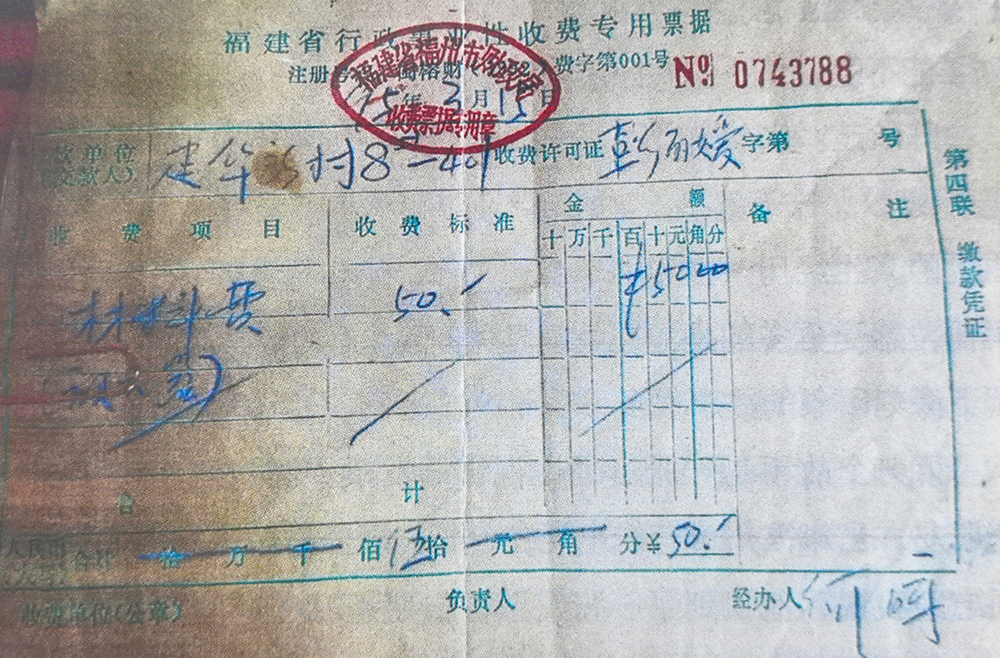 福建省行政事业性收费专用票据
注册号 闽榕财 费字第001号
福建省福州市财政局
收费票据专用章
№ 0743788
95年3月15日
缴款单位
(交款人)
建华新村8—401
收费许可证 字第 号
收费项目
收费标准
金额
十万千百十元角分
备注
材料费
50.
5000
合计
人民币
(大写)
合计 拾万千佰伍拾元角分¥50.
收费单位(公章)
负责人
经办人
第四联 缴款凭证